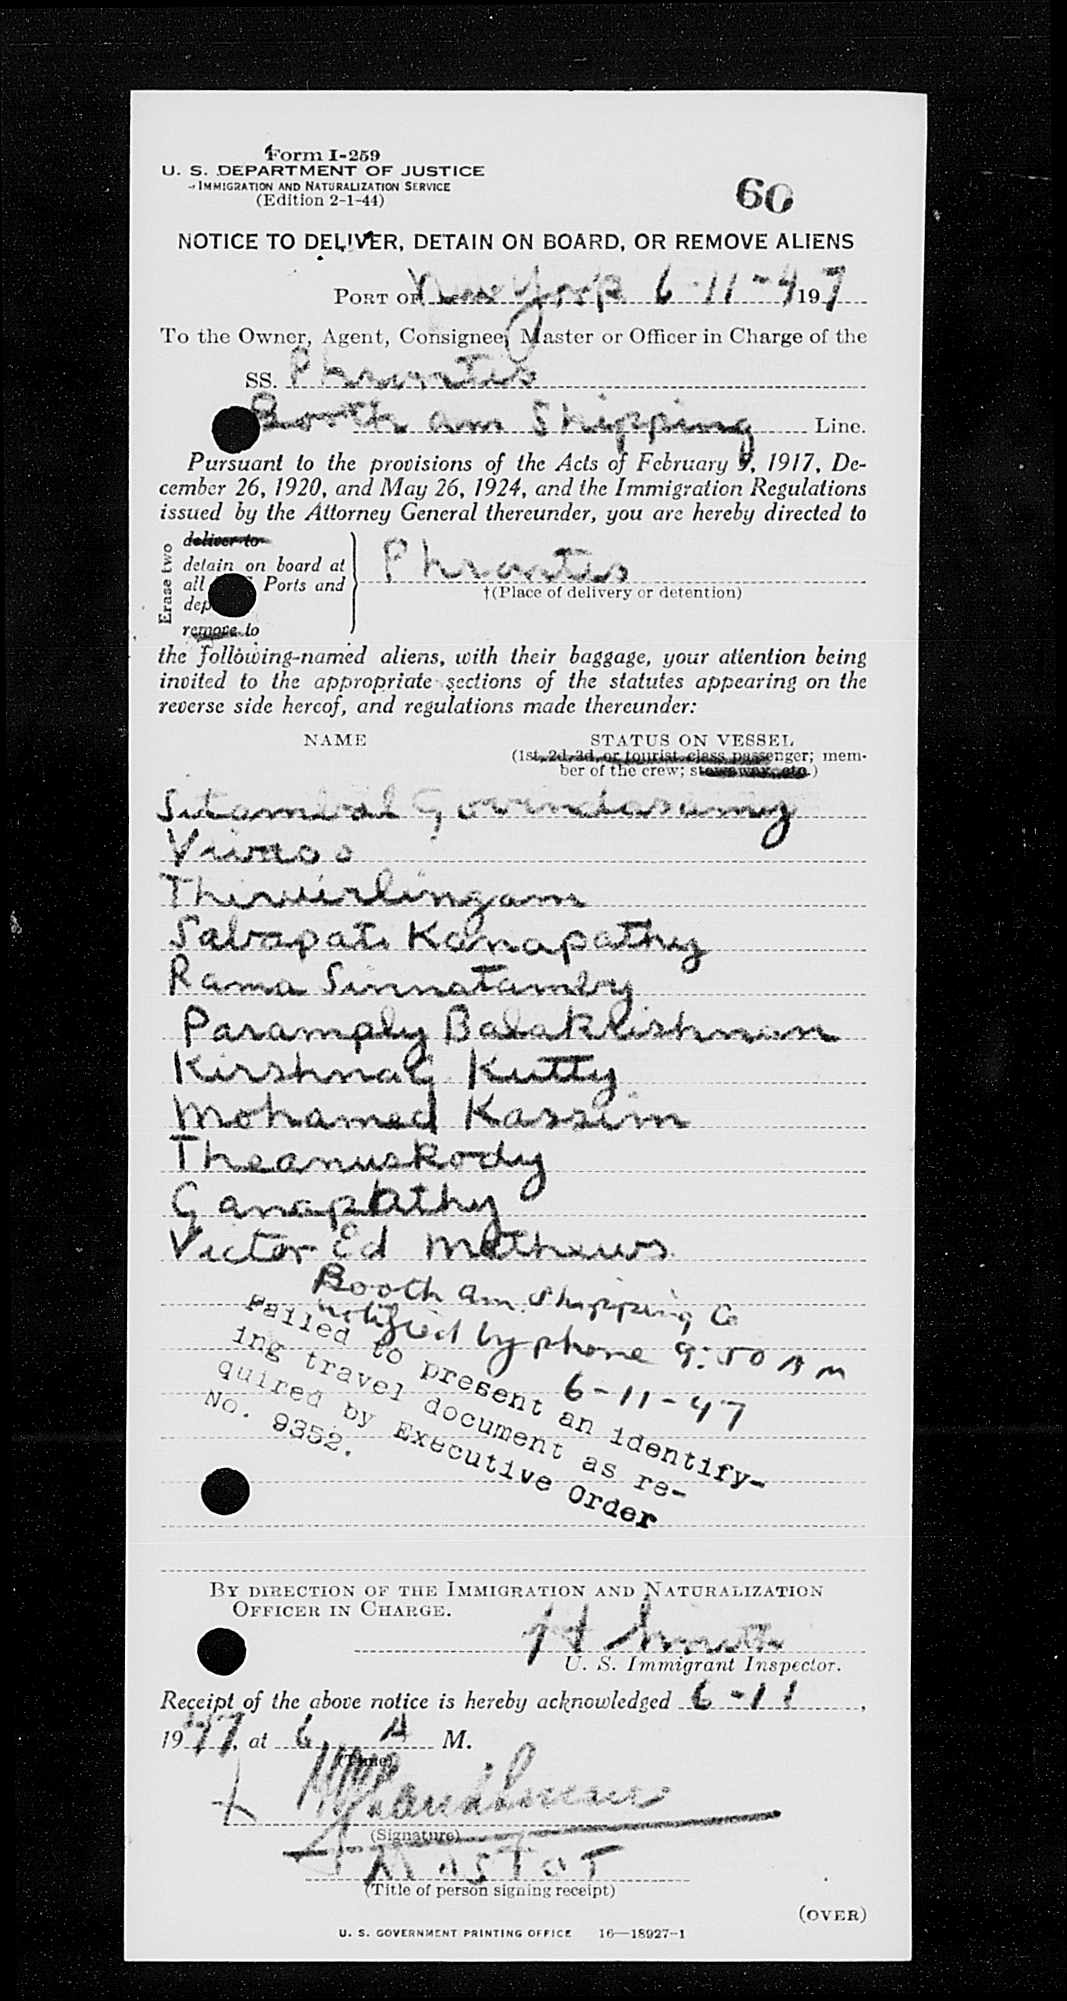 Form I-259
U. S. DEPARTMENT OF JUSTICE
IMMIGRATION AND NATURALIZATION SERVICE
(Edition 2-1-44)
60
NOTICE TO DELIVER, DETAIN ON BOARD, OR REMOVE ALIENS
PORT OF New York 6-11-4 197
To the Owner, Agent, Consignee, Master or Officer in Charge of the
SS. Phrontis
Booth am Shipping Line.
Pursuant to the provisions of the Acts of February 5, 1917, De-
cember 26, 1920, and May 26, 1924, and the Immigration Regulations
issued by the Attorney General thereunder, you are hereby directed to
Erase two
deliver to
detain on board at
all Ports and
dep
remove to
Phrontis
†(Place of delivery or detention)
the following-named aliens, with their baggage, your attention being
invited to the appropriate sections of the statutes appearing on the
reverse side hereof, and regulations made thereunder:
NAME STATUS ON VESSEL
(1st, 2d, 3d, or tourist class passenger; mem-
ber of the crew; stowaway, etc.)
Govindasamy
Thiruvirlingam
Sabapati Kanapathy
Rama Sinnatamby
Paramply Balakrishnan
Kirshnag Kutty
Mohamed Kassim
Theanuskody
Ganapathy
Victor Ed Mathews
Booth Am. Shipping Co
notified by phone 9:50 AM
6-11-47
Failed to present an identify-
ing travel document as re-
quired by Executive Order
No. 9352.
BY DIRECTION OF THE IMMIGRATION AND NATURALIZATION
OFFICER IN CHARGE.
H Smith
U. S. Immigrant Inspector.
Receipt of the above notice is hereby acknowledged 6-11,
1947, at 6 A M.
(Time)
(Signature)
Master
(Title of person signing receipt)
(OVER)
U. S. GOVERNMENT PRINTING OFFICE 16—18927-1